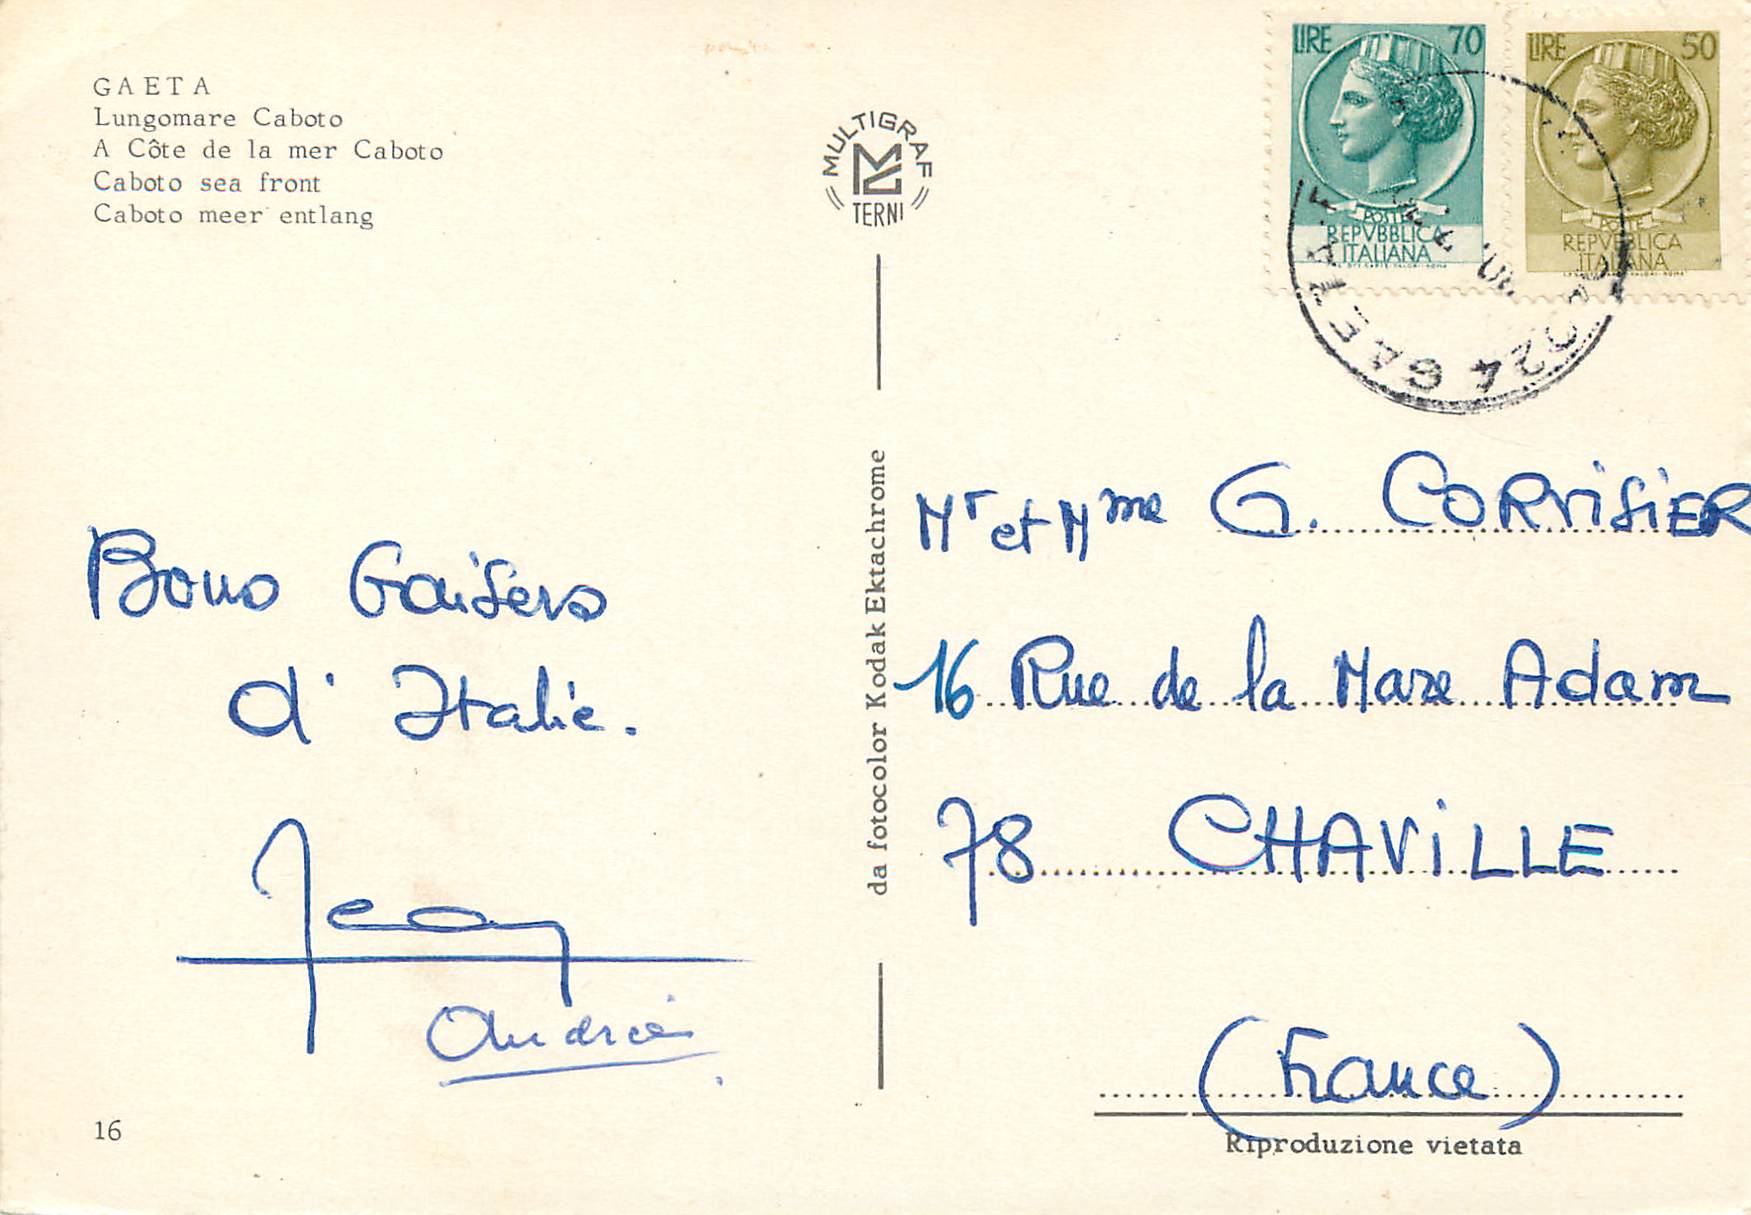 GAETA
Lungomare Caboto
A Côte de la mer Caboto
Caboto sea front
Caboto meer entlang
MULTIGRAF
TERNI
LIRE 70
POSTE
REPVBBLICA
ITALIANA
LIRE 50
POSTE
REPVBBLICA
ITALIANA
04024 GAETA
Bons Baisers
d'Italie.
Jean
Andrée
16
da fotocolor Kodak Ektachrome
Mr et Mme G. CORViSiER
16 Rue de la Mare Adam
78 CHAViLLE
(France)
Riproduzione vietata